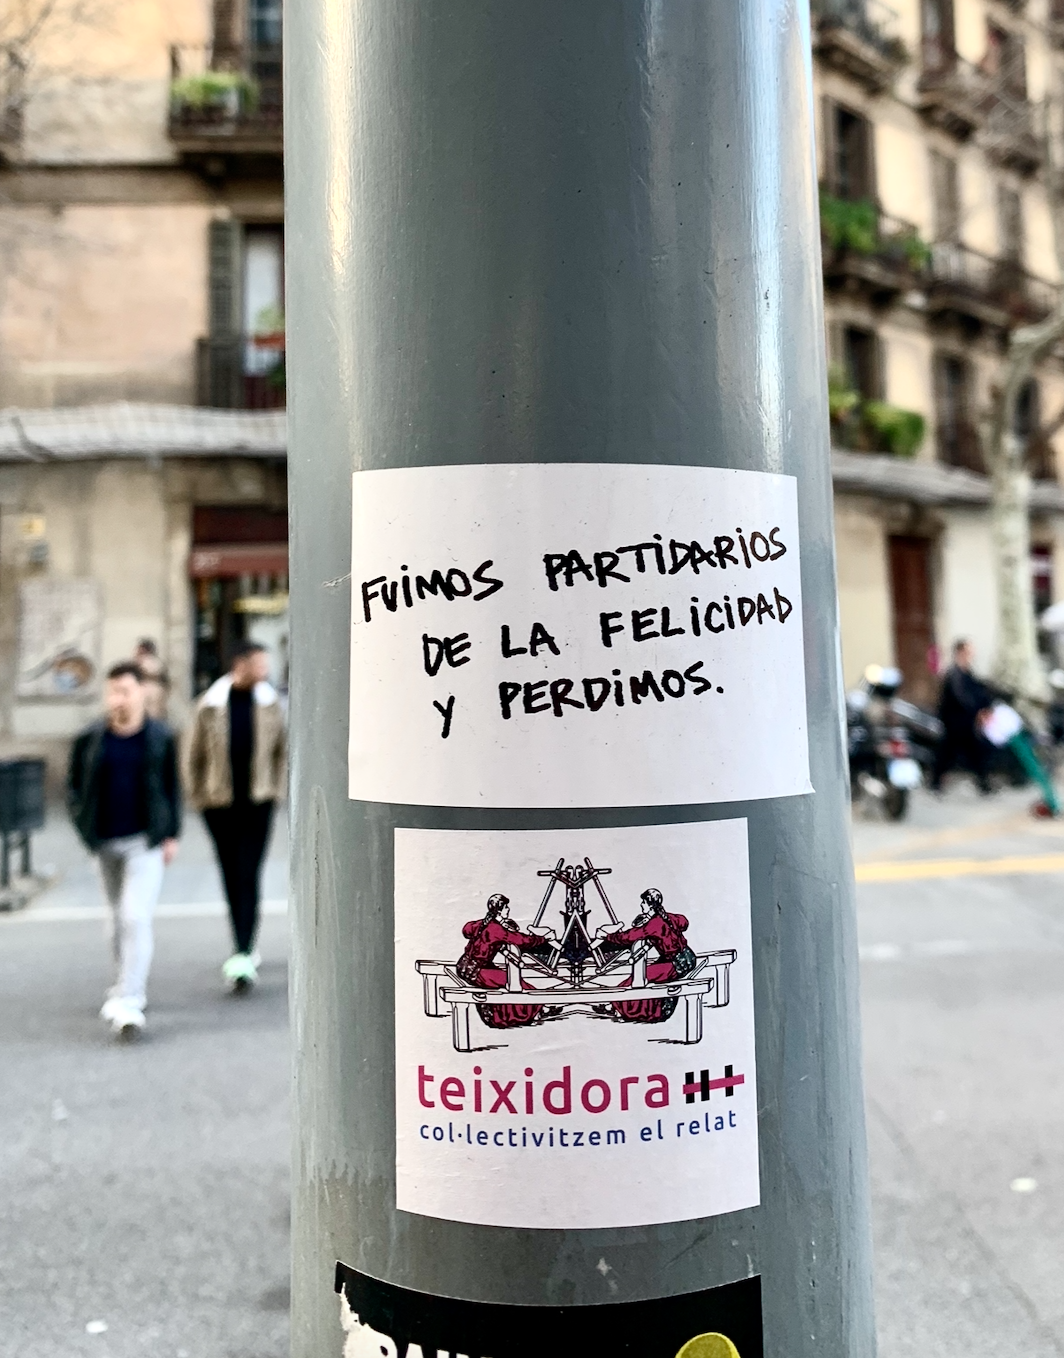 FUiMOS PARTiDARiOS
DE LA FELiCiDAD
Y PERDiMOS.
teixidora
col·lectivitzem el relat